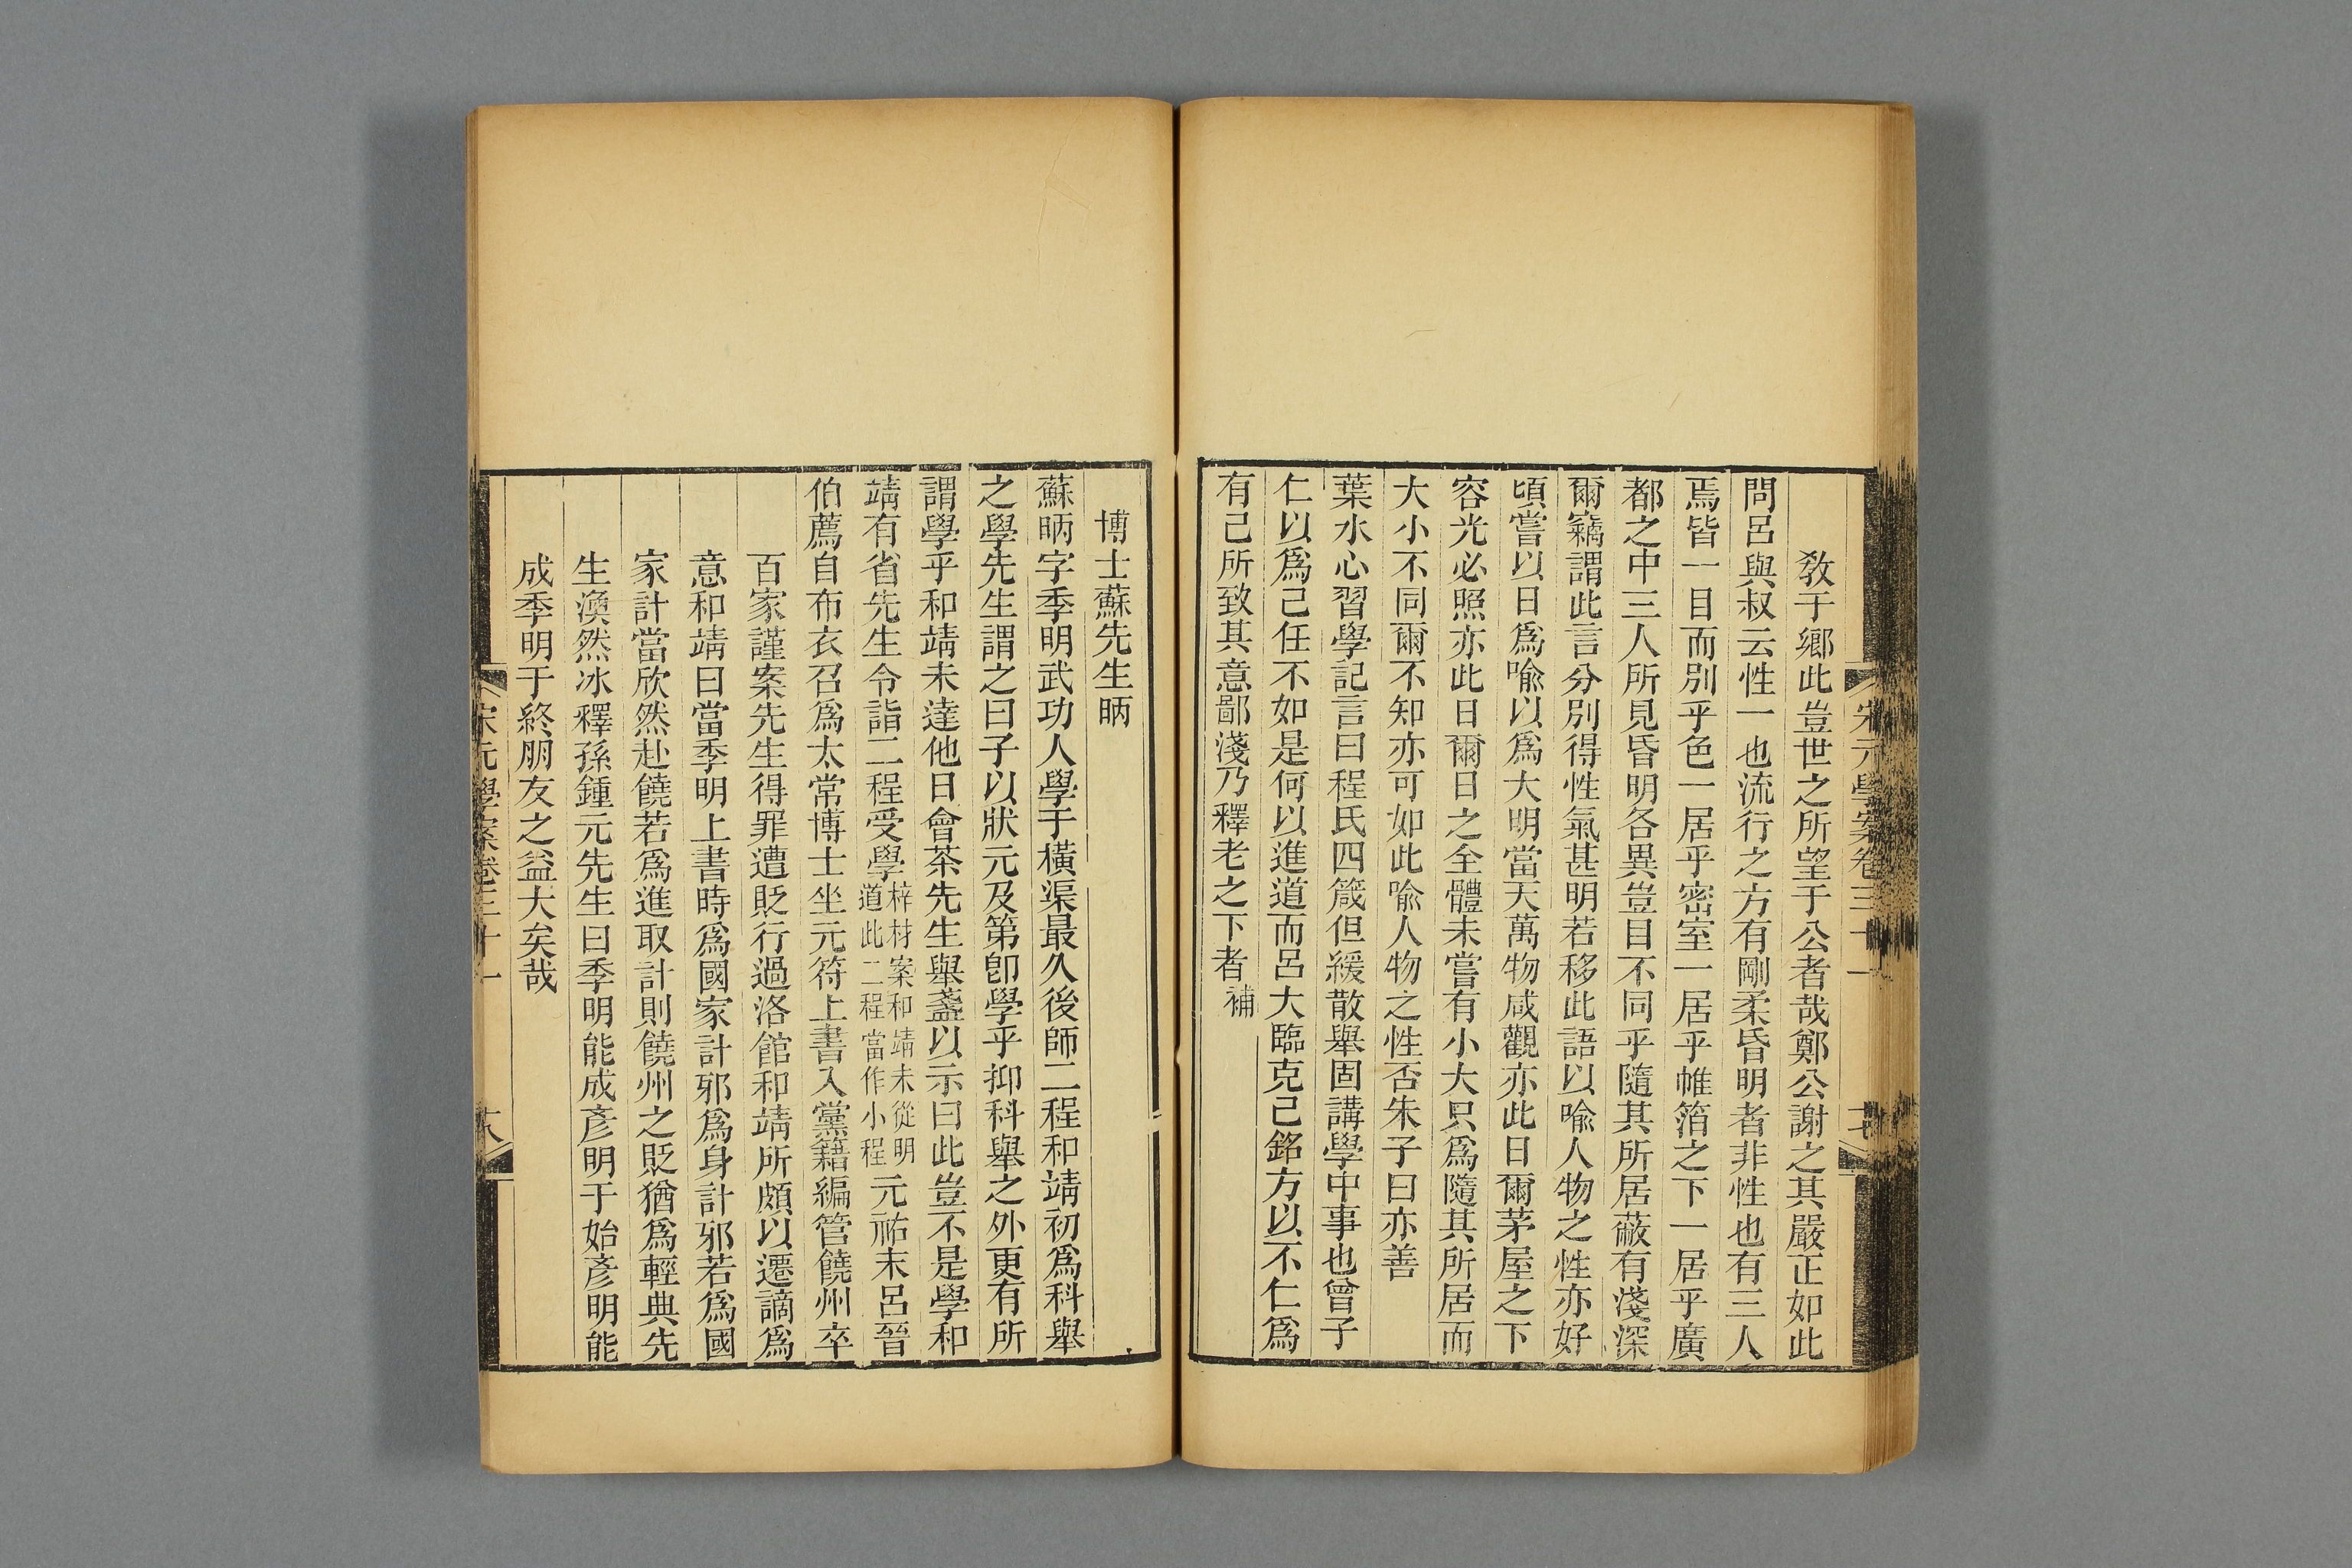 宋元學案卷三十一
十七
敎于鄉此豈世之所望于公者哉鄭公謝之其嚴正如此
問呂與叔云性一也流行之方有剛柔昏明者非性也有三人
焉皆一目而別乎色一居乎密室一居乎帷箔之下一居乎廣
都之中三人所見昏明各異豈目不同乎隨其所居蔽有淺深
爾竊謂此言分別得性氣甚明若移此語以喩人物之性亦好
頃嘗以日爲喩以爲大明當天萬物咸觀亦此日爾茅屋之下
容光必照亦此日爾日之全體未嘗有小大只爲隨其所居而
大小不同爾不知亦可如此喩人物之性否朱子曰亦善
葉水心習學記言曰程氏四箴但緩散舉固講學中事也曾子
仁以爲己任不如是何以進道而呂大臨克己銘方以不仁爲
有己所致其意鄙淺乃釋老之下者補
博士蘇先生昞
蘇昞字季明武功人學于橫渠最久後師二程和靖初爲科舉
之學先生謂之曰子以狀元及第卽學乎抑科舉之外更有所
謂學乎和靖未達他日會茶先生舉盞以示曰此豈不是學和
靖有省先生令詣二程受學梓材案和靖未從明道此二程當作小程元祐末呂晉
伯薦自布衣召爲太常博士坐元符上書入黨籍編管饒州卒
百家謹案先生得罪遭貶行過洛館和靖所頗以遷謫爲
意和靖曰當季明上書時爲國家計邪爲身計邪若爲國
家計當欣然赴饒若爲進取計則饒州之貶猶爲輕典先
生渙然冰釋孫鍾元先生曰季明能成彥明于始彥明能
成季明于終朋友之益大矣哉
宋元學案卷三十一
十八